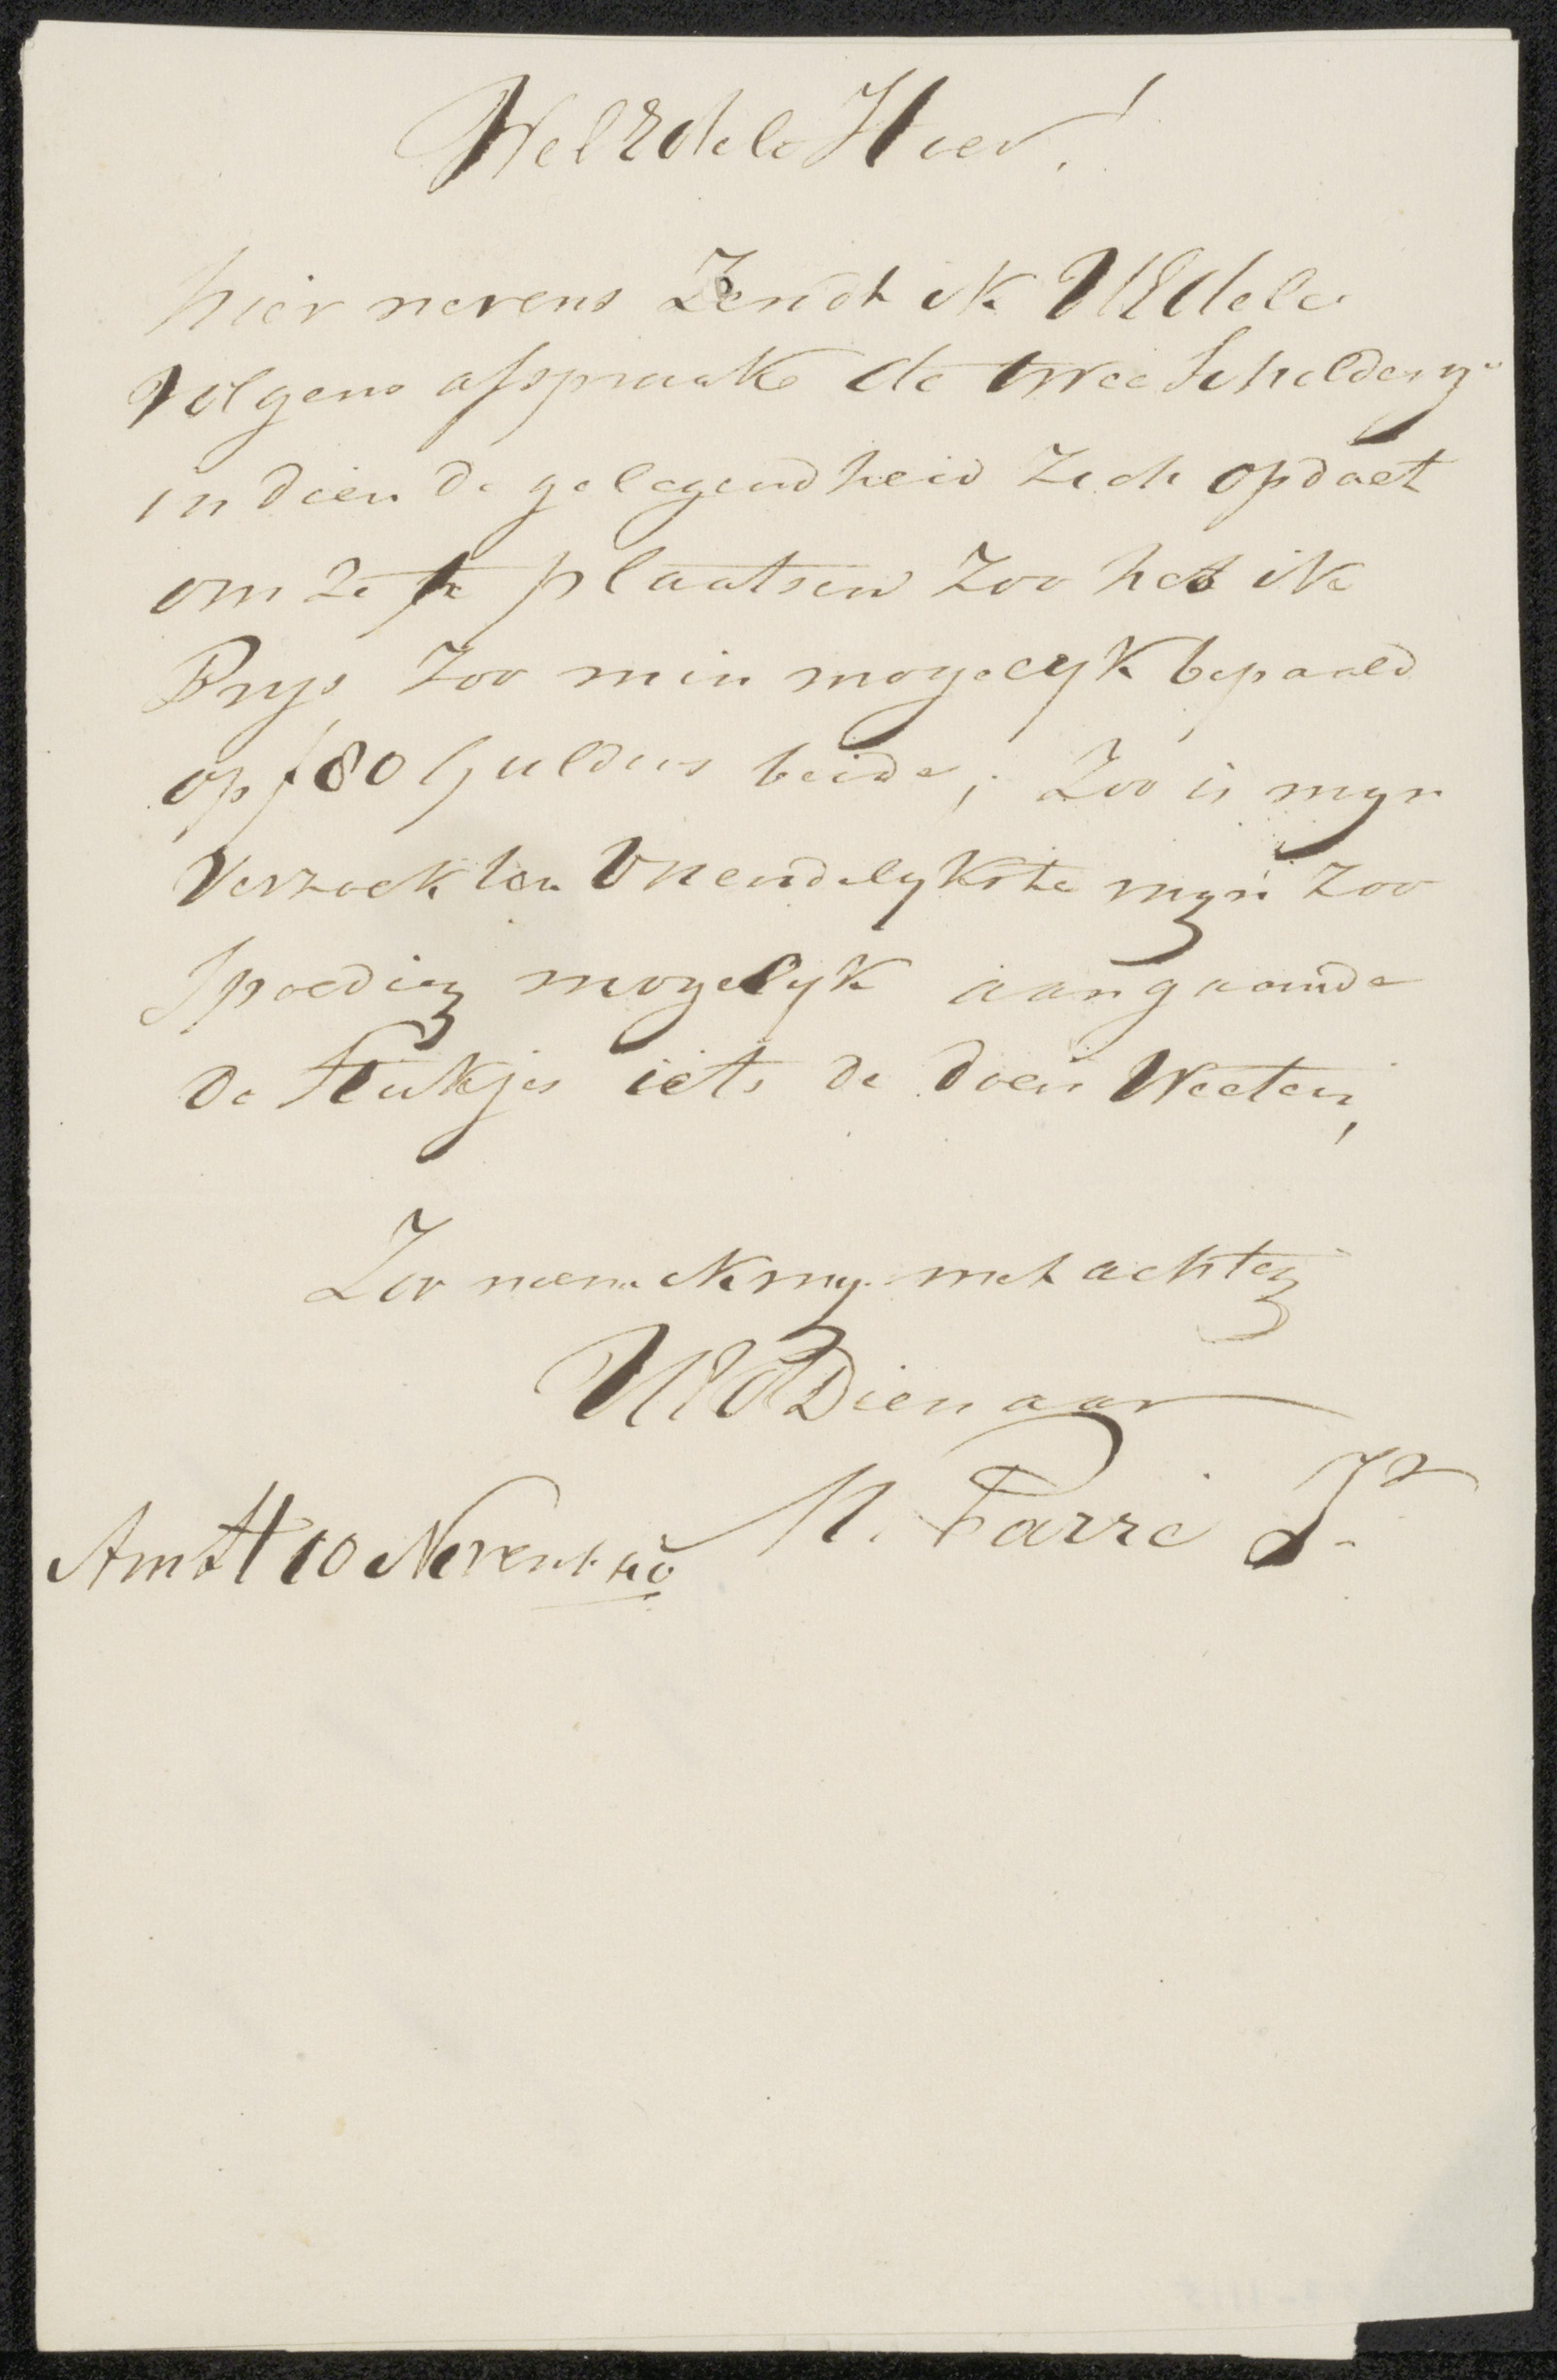 WelEdele Heer!
hier nevens Zendt ik UEdele
volgens afspraake de twee Schilderyn
in dien de gelegendheid zich opdoet
om ze te plaatsen zoo heb ik
Prys zoo min mogelyk bepaald
op f 80 Guldens beide; Zoo is myn
Verzoek ten Vriendelykste myn zoo
Spoedig mogelyk aangaande
de Stukjes iets de doen Weeten,
Zoo noem ik my met achting
UEd Dienaar
M. Parré Jr
Amst 10 Novemb 40